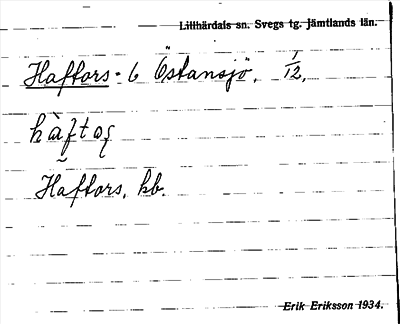 Lillhärdals sn. Svegs tg. Jämtlands län.
Haftors - 6 Östansjö, 1/12,
hàftoʂ
Haftors, kb.
Erik Eriksson 1934.